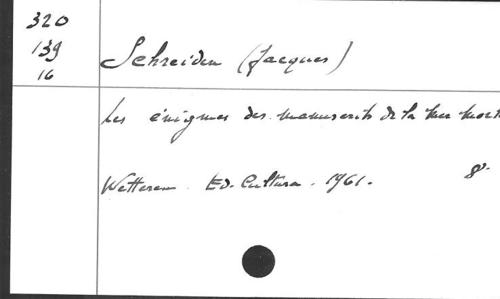 320
139
16
Schreiden (Jacques)
Les énigmes des manuscrits de la mer mort
Wetteren. Ed. Cultura. 1961. 8°